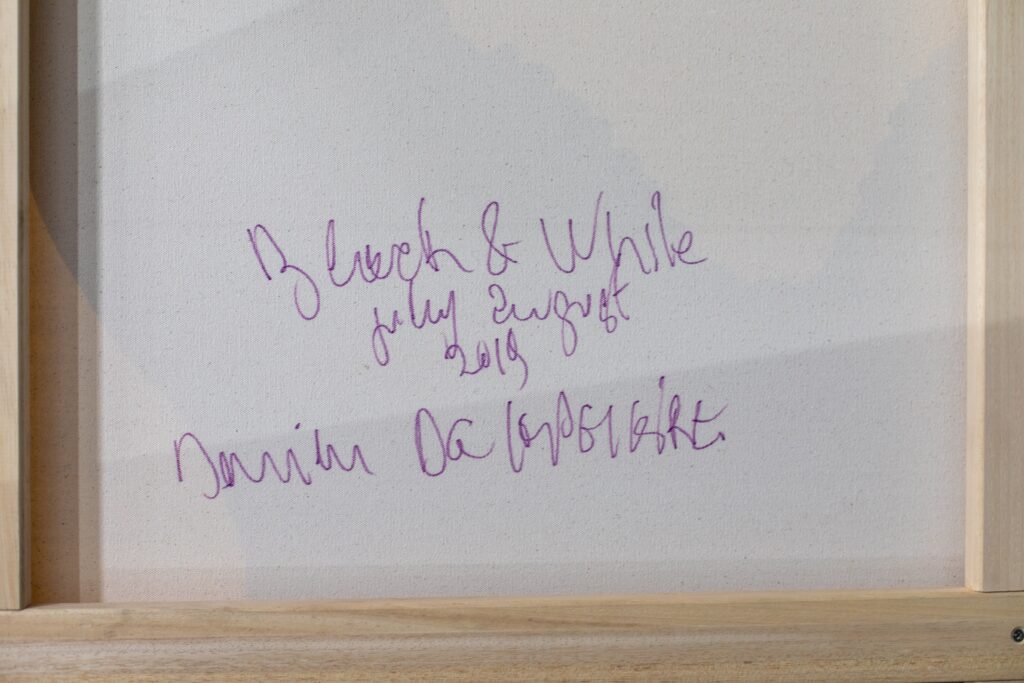 Black & White
july august
2019
Damien